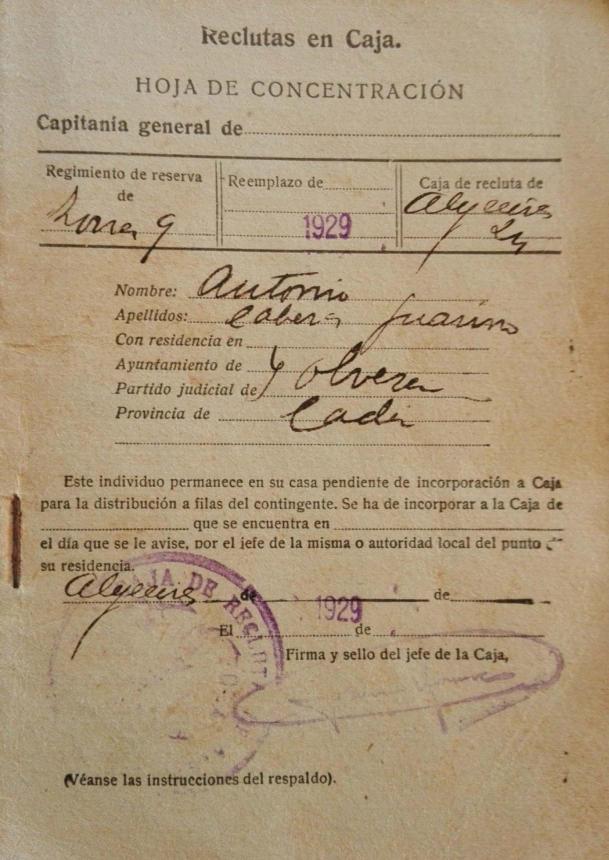 Reclutas en Caja.
HOJA DE CONCENTRACIÓN
Capitanía general de
Regimiento de reserva
de
9
Reemplazo de
1929
Caja de recluta de
Algeciras
24
Nombre: Antonio
Apellidos: Cabera
Con residencia en
Ayuntamiento de
Partido judicial de Olvera
Provincia de Cadiz
Este individuo permanece en su casa pendiente de incorporación a Caja
para la distribución a filas del contingente. Se ha de incorporar a la Caja de
que se encuentra en
el día que se le avise, por el jefe de la misma o autoridad local del punto de
su residencia.
Algeciras de de
1929
El de
Firma y sello del jefe de la Caja,
CAJA DE RECLUTA
(Véanse las instrucciones del respaldo).